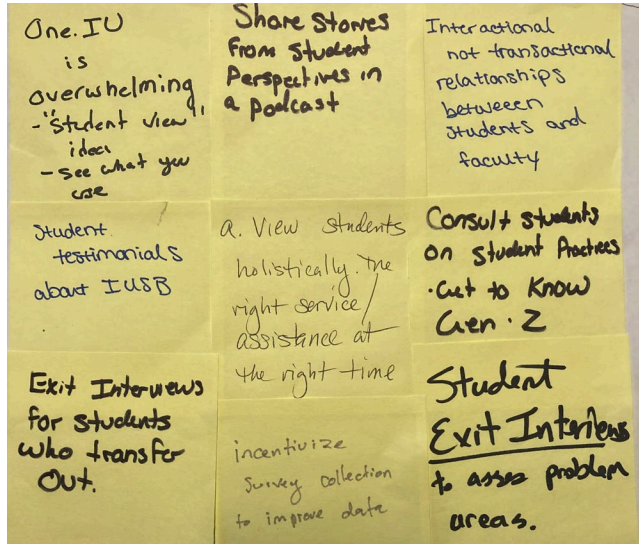 One.IU
is
overwhelming
- "Student view"
idea
- See what you
use
Share Stories
From Student
Perspectives in
a Podcast
Interactional
not transactional
relationships
betweeen
students and
faculty
Student
testimonials
about IUSB
a. View students
holistically. The
right service/
assistance at
the right time
Consult students
on Student Practices
· Get to Know
Gen · Z
Exit Interviews
for students
who transfer
Out.
incentivize
survey collection
to improve data
Student
Exit Interviews
to asses problem
areas.